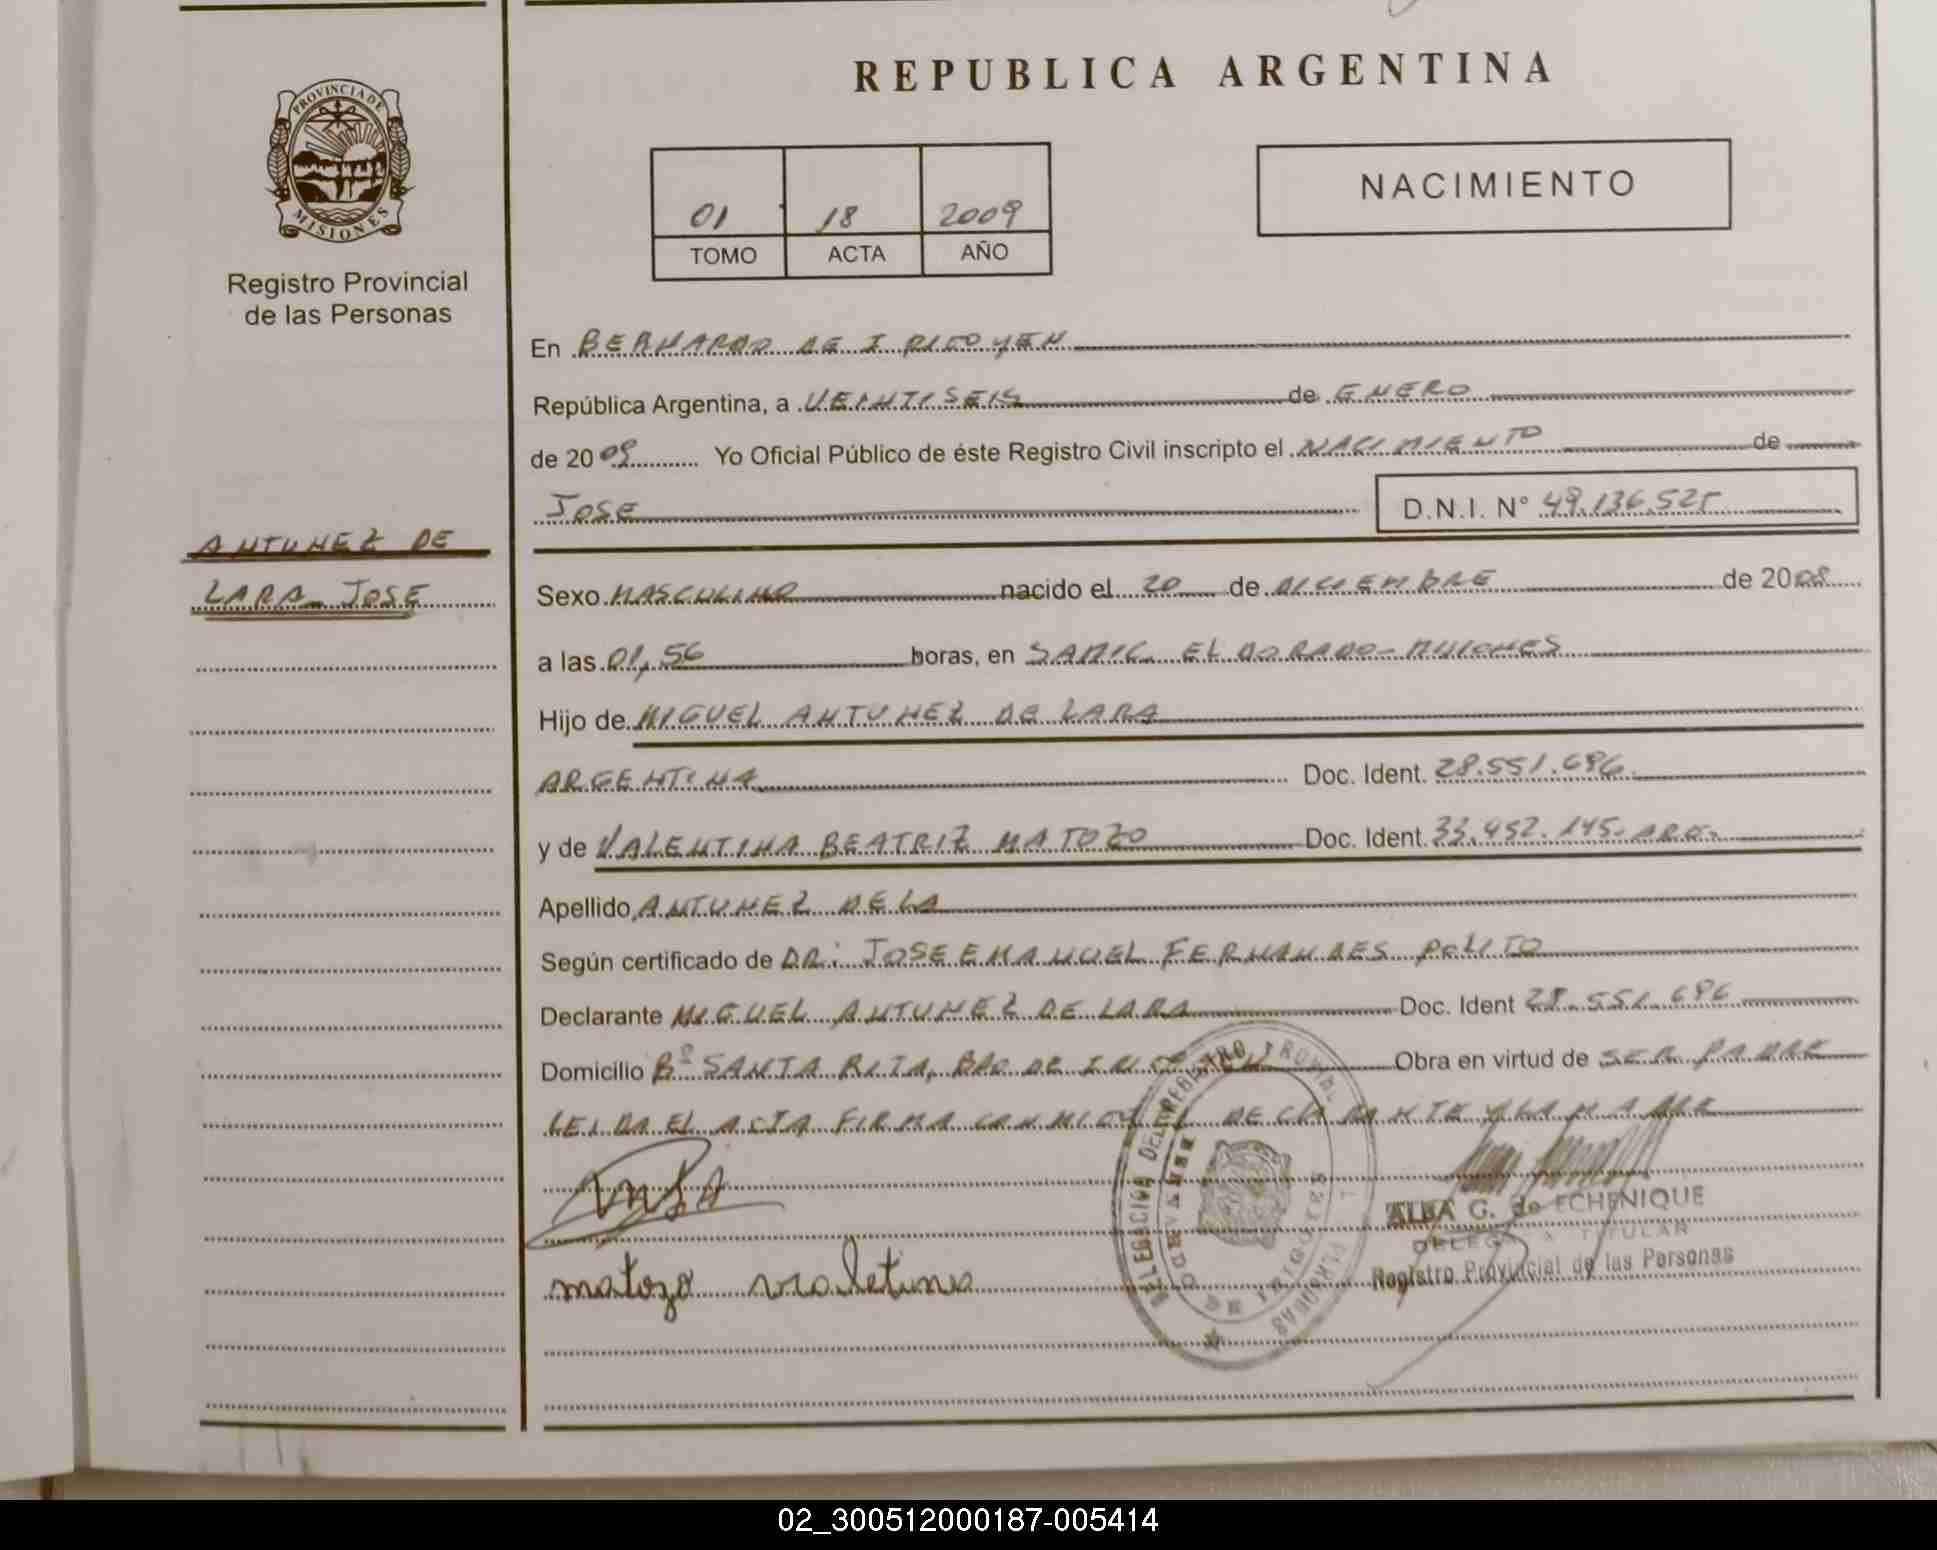 REPUBLICA ARGENTINA
PROVINCIA DE
MISIONES
Registro Provincial
de las Personas
01 18 2009
TOMO ACTA AÑO
NACIMIENTO
En BERNARDO DE IRIGOYEN
República Argentina, a VEINTISEIS de ENERO
de 2009 Yo Oficial Público de éste Registro Civil inscripto el NACIMIENTO de
JOSE D.N.I. N° 49.136.525
ANTUNEZ DE
LARA JOSE
Sexo MASCULINO nacido el 20 de DICIEMBRE de 2008
a las 01,56 horas, en SAMIC. ELDORADO-MISIONES
Hijo de MIGUEL ANTUNEZ DE LARA
ARGENTINA Doc. Ident. 28.551.696
y de VALENTINA BEATRIZ MATOZO Doc. Ident. 33.952.145 ARG.
Apellido ANTUNEZ DE LA
Según certificado de DR: JOSE EMANOEL FERNANDES POLITO
Declarante MIGUEL ANTUNEZ DE LARA Doc. Ident 28.551.696
Domicilio B° SANTA RITA, BDO DE Obra en virtud de SER PADRE
LEIDA EL ACTA FIRMA CONMIGO EL DECLARANTE Y LA MADRE
matozo valetina
DELEGACION DEL REGISTRO
ALBA G. de ECHENIQUE
DELEGADA TITULAR
Registro Provincial de las Personas
02_300512000187-005414